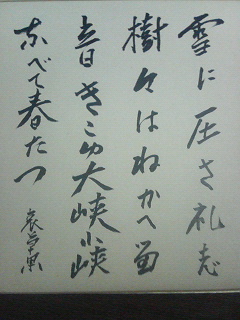 雪に圧されし
樹々はねかへる
音きこゆ大峡小峡
なべて春たつ
哀草果